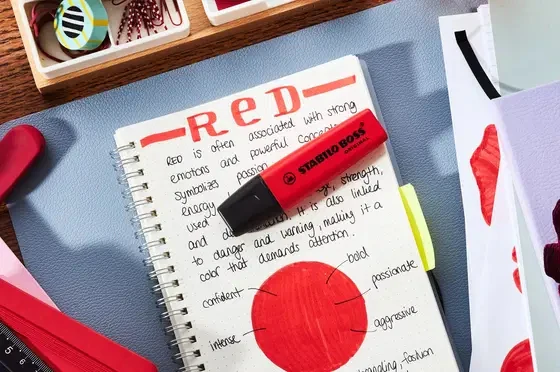 RED
RED is often associated with strong
emotions and powerful
Symbolizes passion
energy
used strength,
and It is also linked
to danger and warning, making it a
color that demands attention.
STABILO BOSS
ORIGINAL
confident
bold
passionate
intense
aggressive
fashion
5
6